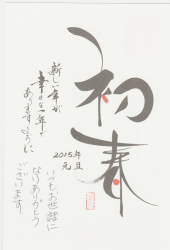 初春
新しい年が
幸せな一年で
ありますように
2015年
元旦
いつもお世話に
なりありがとう
ございます。